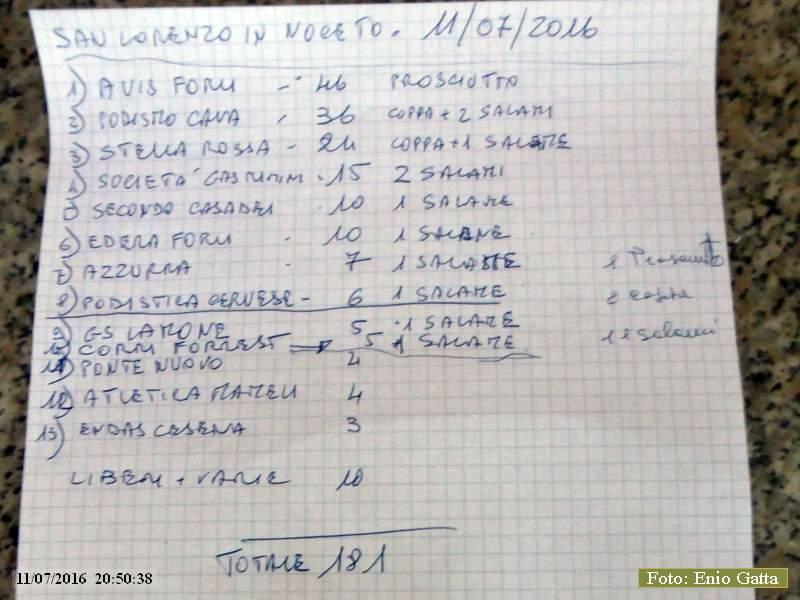 SAN LORENZO IN NOCETO. 11/07/2016
1) AVIS FORLI - 46 PROSCIUTTO
2) PODISTICO CAVA - 36 COPPA + 2 SALAMI
3) STELLA ROSSA - 24 COPPA + 1 SALAME
4) SOCIETÀ - 15 2 SALAMI
5) SECONDO CASADEI - 10 1 SALAME
6) EDERA FORLI - 10 1 SALAME
7) AZZURRA - 7 1 SALAME 1 Prosciutto
8) PODISTICA CERVESE - 6 1 SALAME 2 coppa
9) GS LAMONE 5 - 1 SALAME 11 Salami
10) CORRI FORREST 5 1 SALAME
11) PONTE NUOVO 4
12) ATLETICA MAMELI 4
13) ENDAS CESENA 3
LIBERI + VARIE 10
TOTALE 181
11/07/2016 20:50:38
Foto: Enio Gatta